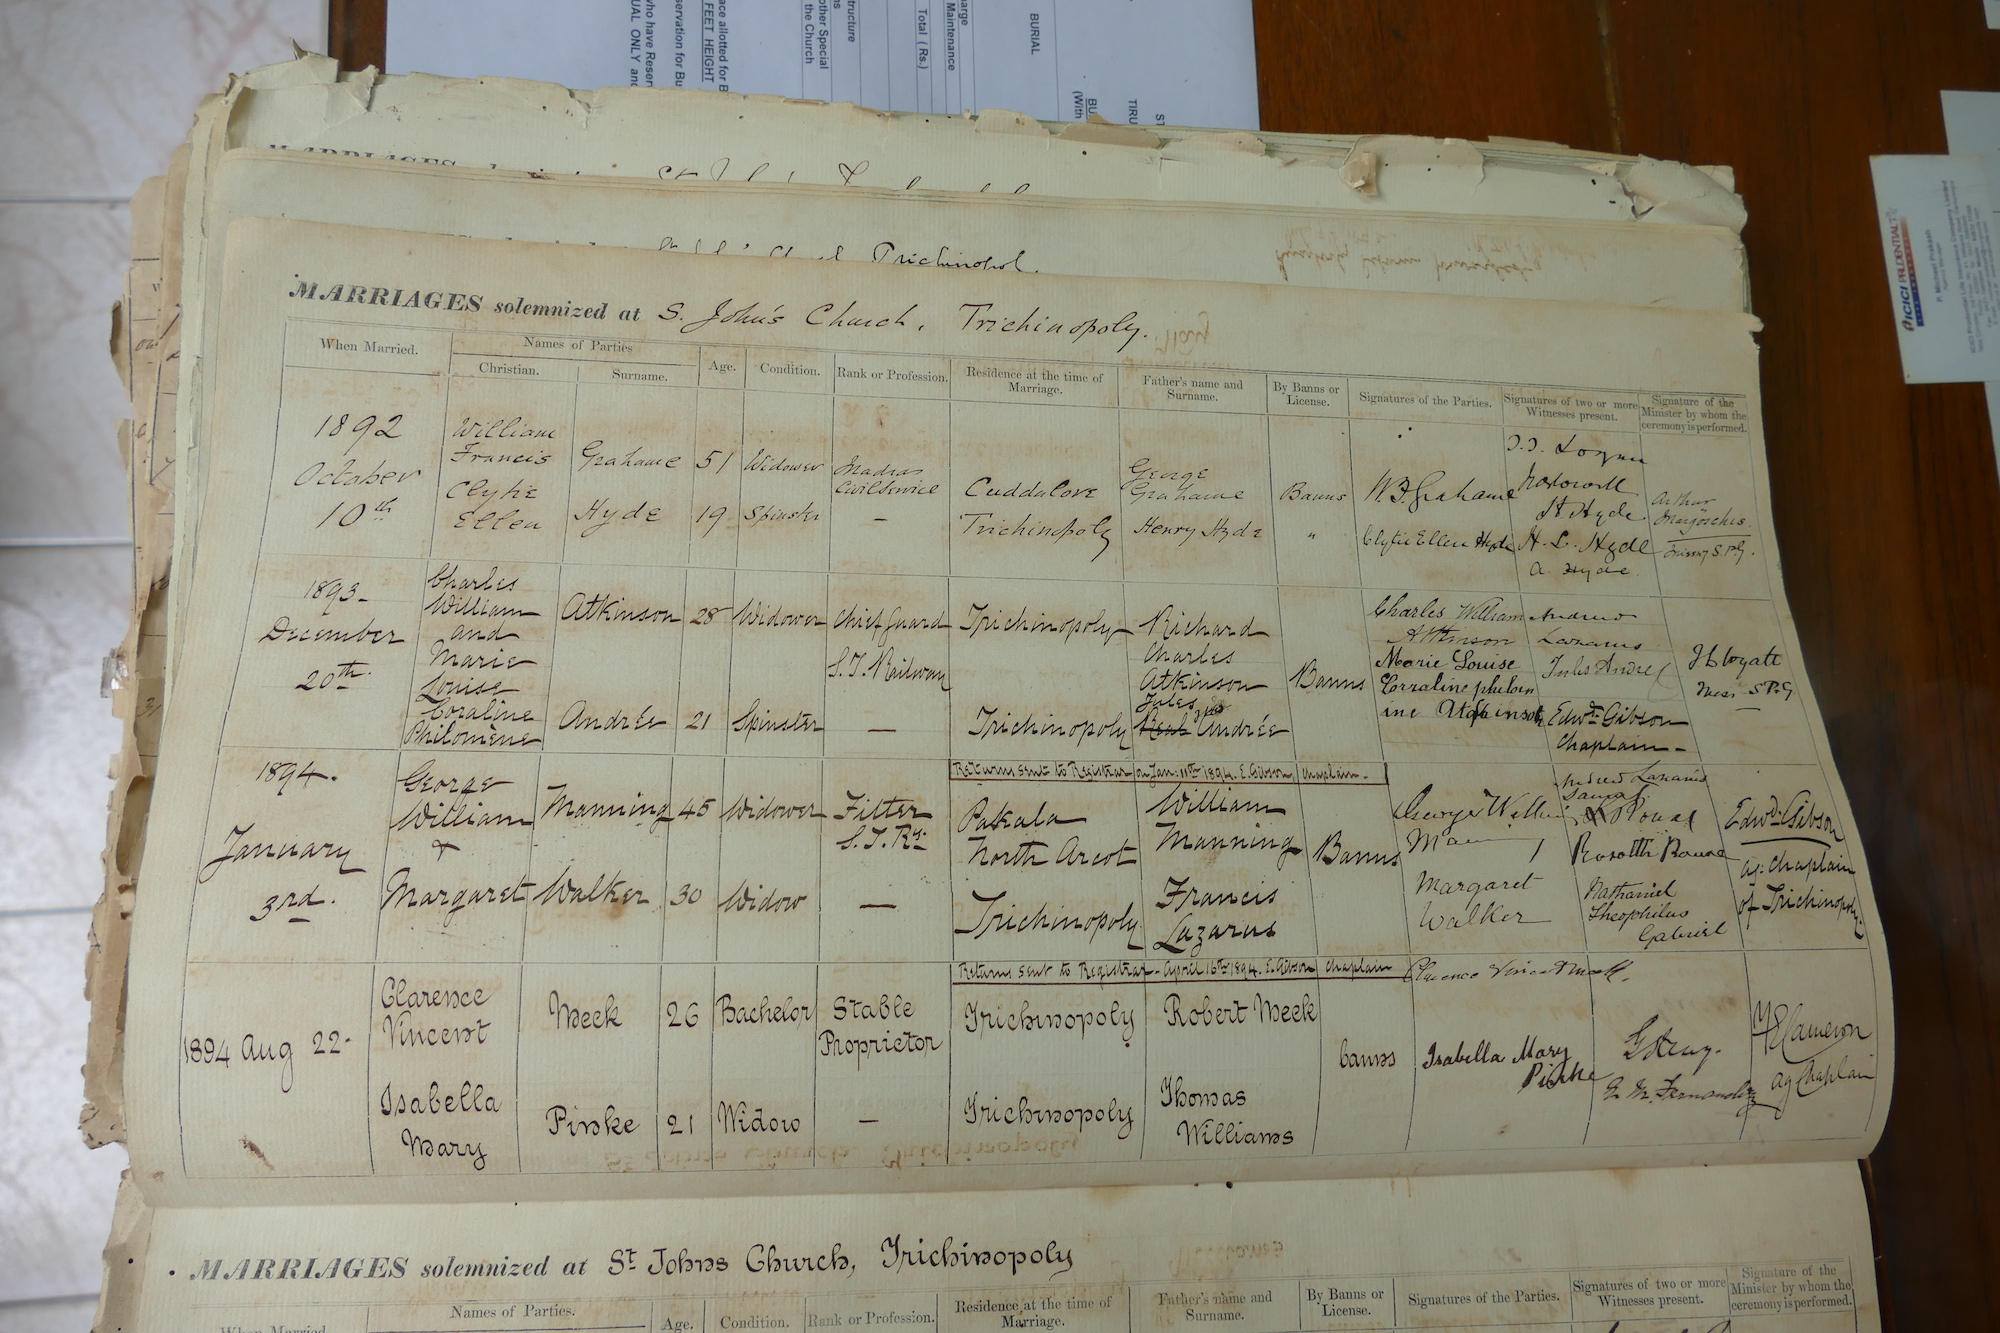 BURIAL
Total (Rs.)
Maintenance
tructure
other Special
the Church
FEET HEIGHT
ICICI PRUDENTIAL
Trichinopol
MARRIAGES solemnized at S. John's Church, Trichinopoly.
When Married.
Names of Parties
Christian.
Surname.
Age.
Condition.
Rank or Profession.
Residence at the time of
Marriage.
Father's name and
Surname.
By Banns or
License.
Signatures of the Parties.
Signatures of two or more
Witnesses present.
Signature of the
Minister by whom the
ceremony is performed.
1892
October
10th
William
Francis
Grahame
51
Widower
Madras
Civil Service
Cuddalore
George
Grahame
Banns
W. F. Grahame
Clytie
Ellen
Hyde
19
Spinster
—
Trichinopoly
Henry Hyde
"
Clytie Ellen Hyde
H Hyde
H. L. Hyde
A. Hyde
Arthur
Margöschis.
S.P.G.
1893-
December
20th.
Charles
William
and
Marie
Louise
Coraline
Philomène
Atkinson
28
Widower
Chief Guard
S. I. Railway
Trichinopoly
Richard
Charles
Atkinson
Andrée
21
Spinster
—
Trichinopoly
Jules
Andrée
Banns
Charles William
Atkinson
Marie Louise
Corraline philom
ine Atkinson
Andrew
Lazarus
Jules Andrée
Edwd. Gibson
Chaplain -
H Wyatt
Miss. S.P.G
Returns sent to Registrar on Jan: 11th 1894. E. Gibson, Chaplain -
1894.
January
3rd.
George
William
+
Margaret
Manning
45
Widower
Fitter
S. I. Ry.
Pakala
North Arcot
William
Manning
Banns
Walker
30
Widow
—
Trichinopoly
Francis
Lazarus
George Willi
Margaret
Walker
Andrew Lazarus
Nathaniel
Theophilus
Gabriel
Edwd. Gibson
ag: Chaplain
of Trichinopoly.
Returns sent to Registrar - April 16th 1894. E. Gibson Chaplain
1894 Aug 22-
Clarence
Vincent
Meek
26
Bachelor
Stable
Proprietor
Trichinopoly
Robert Meek
Clarence Vincent Meek.
Isabella
Mary
Pinke
21
Widow
—
Trichinopoly
Thomas
Williams
banns
Isabella Mary
Pinke
Cameron
ag Chaplain
MARRIAGES solemnized at St Johns Church, Trichinopoly
When Married
Names of Parties.
Age.
Condition.
Rank or Profession.
Residence at the time of
Marriage.
Father's name and
Surname.
By Banns or
License.
Signatures of the Parties.
Signatures of two or more
Witnesses present.
Signature of the
Minister by whom the
ceremony is performed.